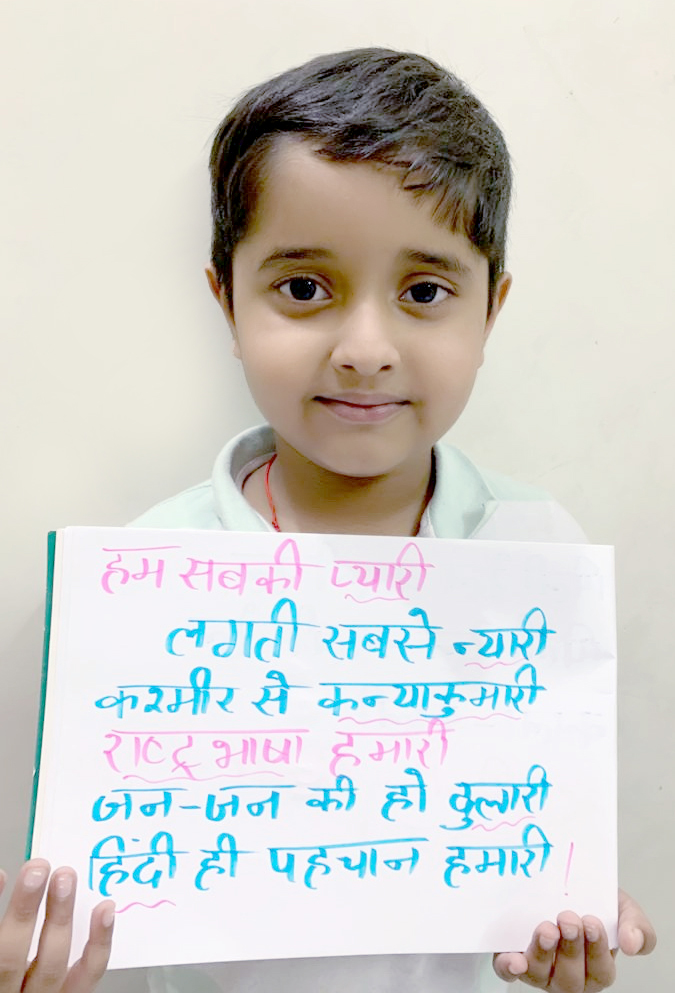 हम सबकी प्यारी
लगती सबसे न्यारी
कश्मीर से कन्याकुमारी
राष्ट्रभाषा हमारी
जन-जन की हो दुलारी
हिंदी ही पहचान हमारी!